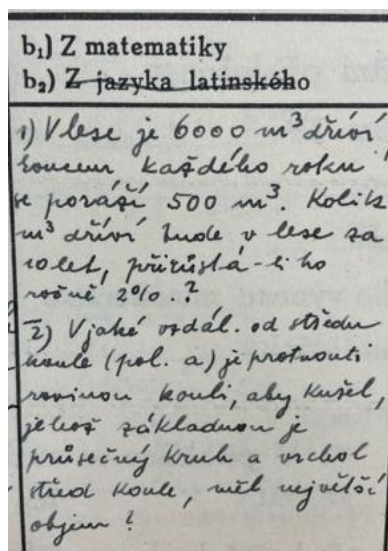 b₁) Z matematiky
b₂) Z jazyka latinského
1) V lese je 6000 m³ dříví
koncem každého roku
se poráží 500 m³. Kolik
m³ dříví bude v lese za
10 let, přirůstá-li ho
ročně 2% ?
2) V jaké vzdál. od středu
koule (pol. a) je protnouti
rovinou kouli, aby kužel,
jehož základnou je
průsečný kruh a vrchol
střed koule, měl největší
objem ?